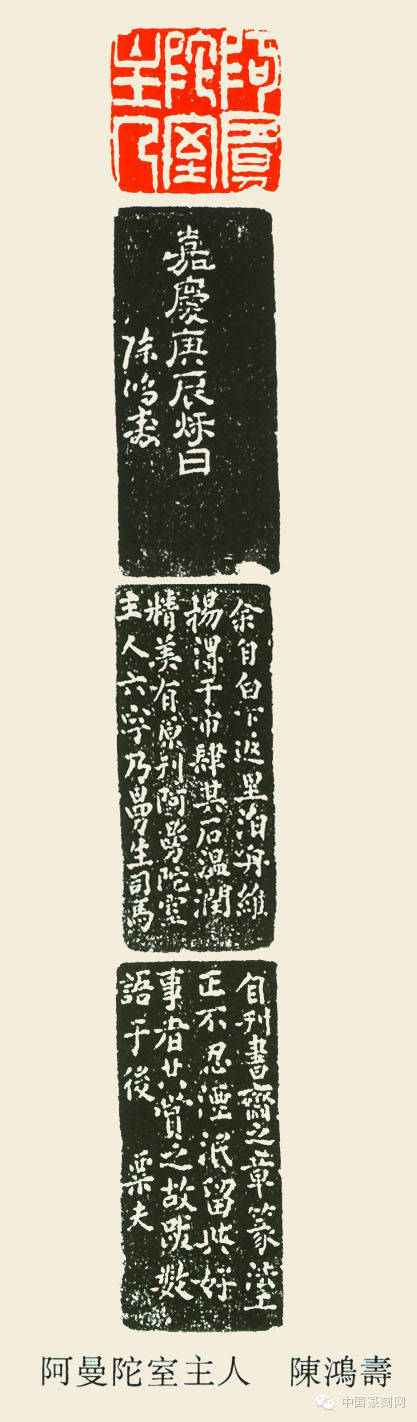 阿曼
陀室
主人
嘉慶庚辰秌日
陳鴻壽
余自白下返里泊舟維
揚得于市肆其石温潤
精美有原刊阿曼陀室
主人六字乃曼生司馬
自刊書齋之章篆法
正不忍湮泯留此好
事者共賞之故跋数
語于後 栗夫
阿曼陀室主人 陳鴻壽
中国篆刻网